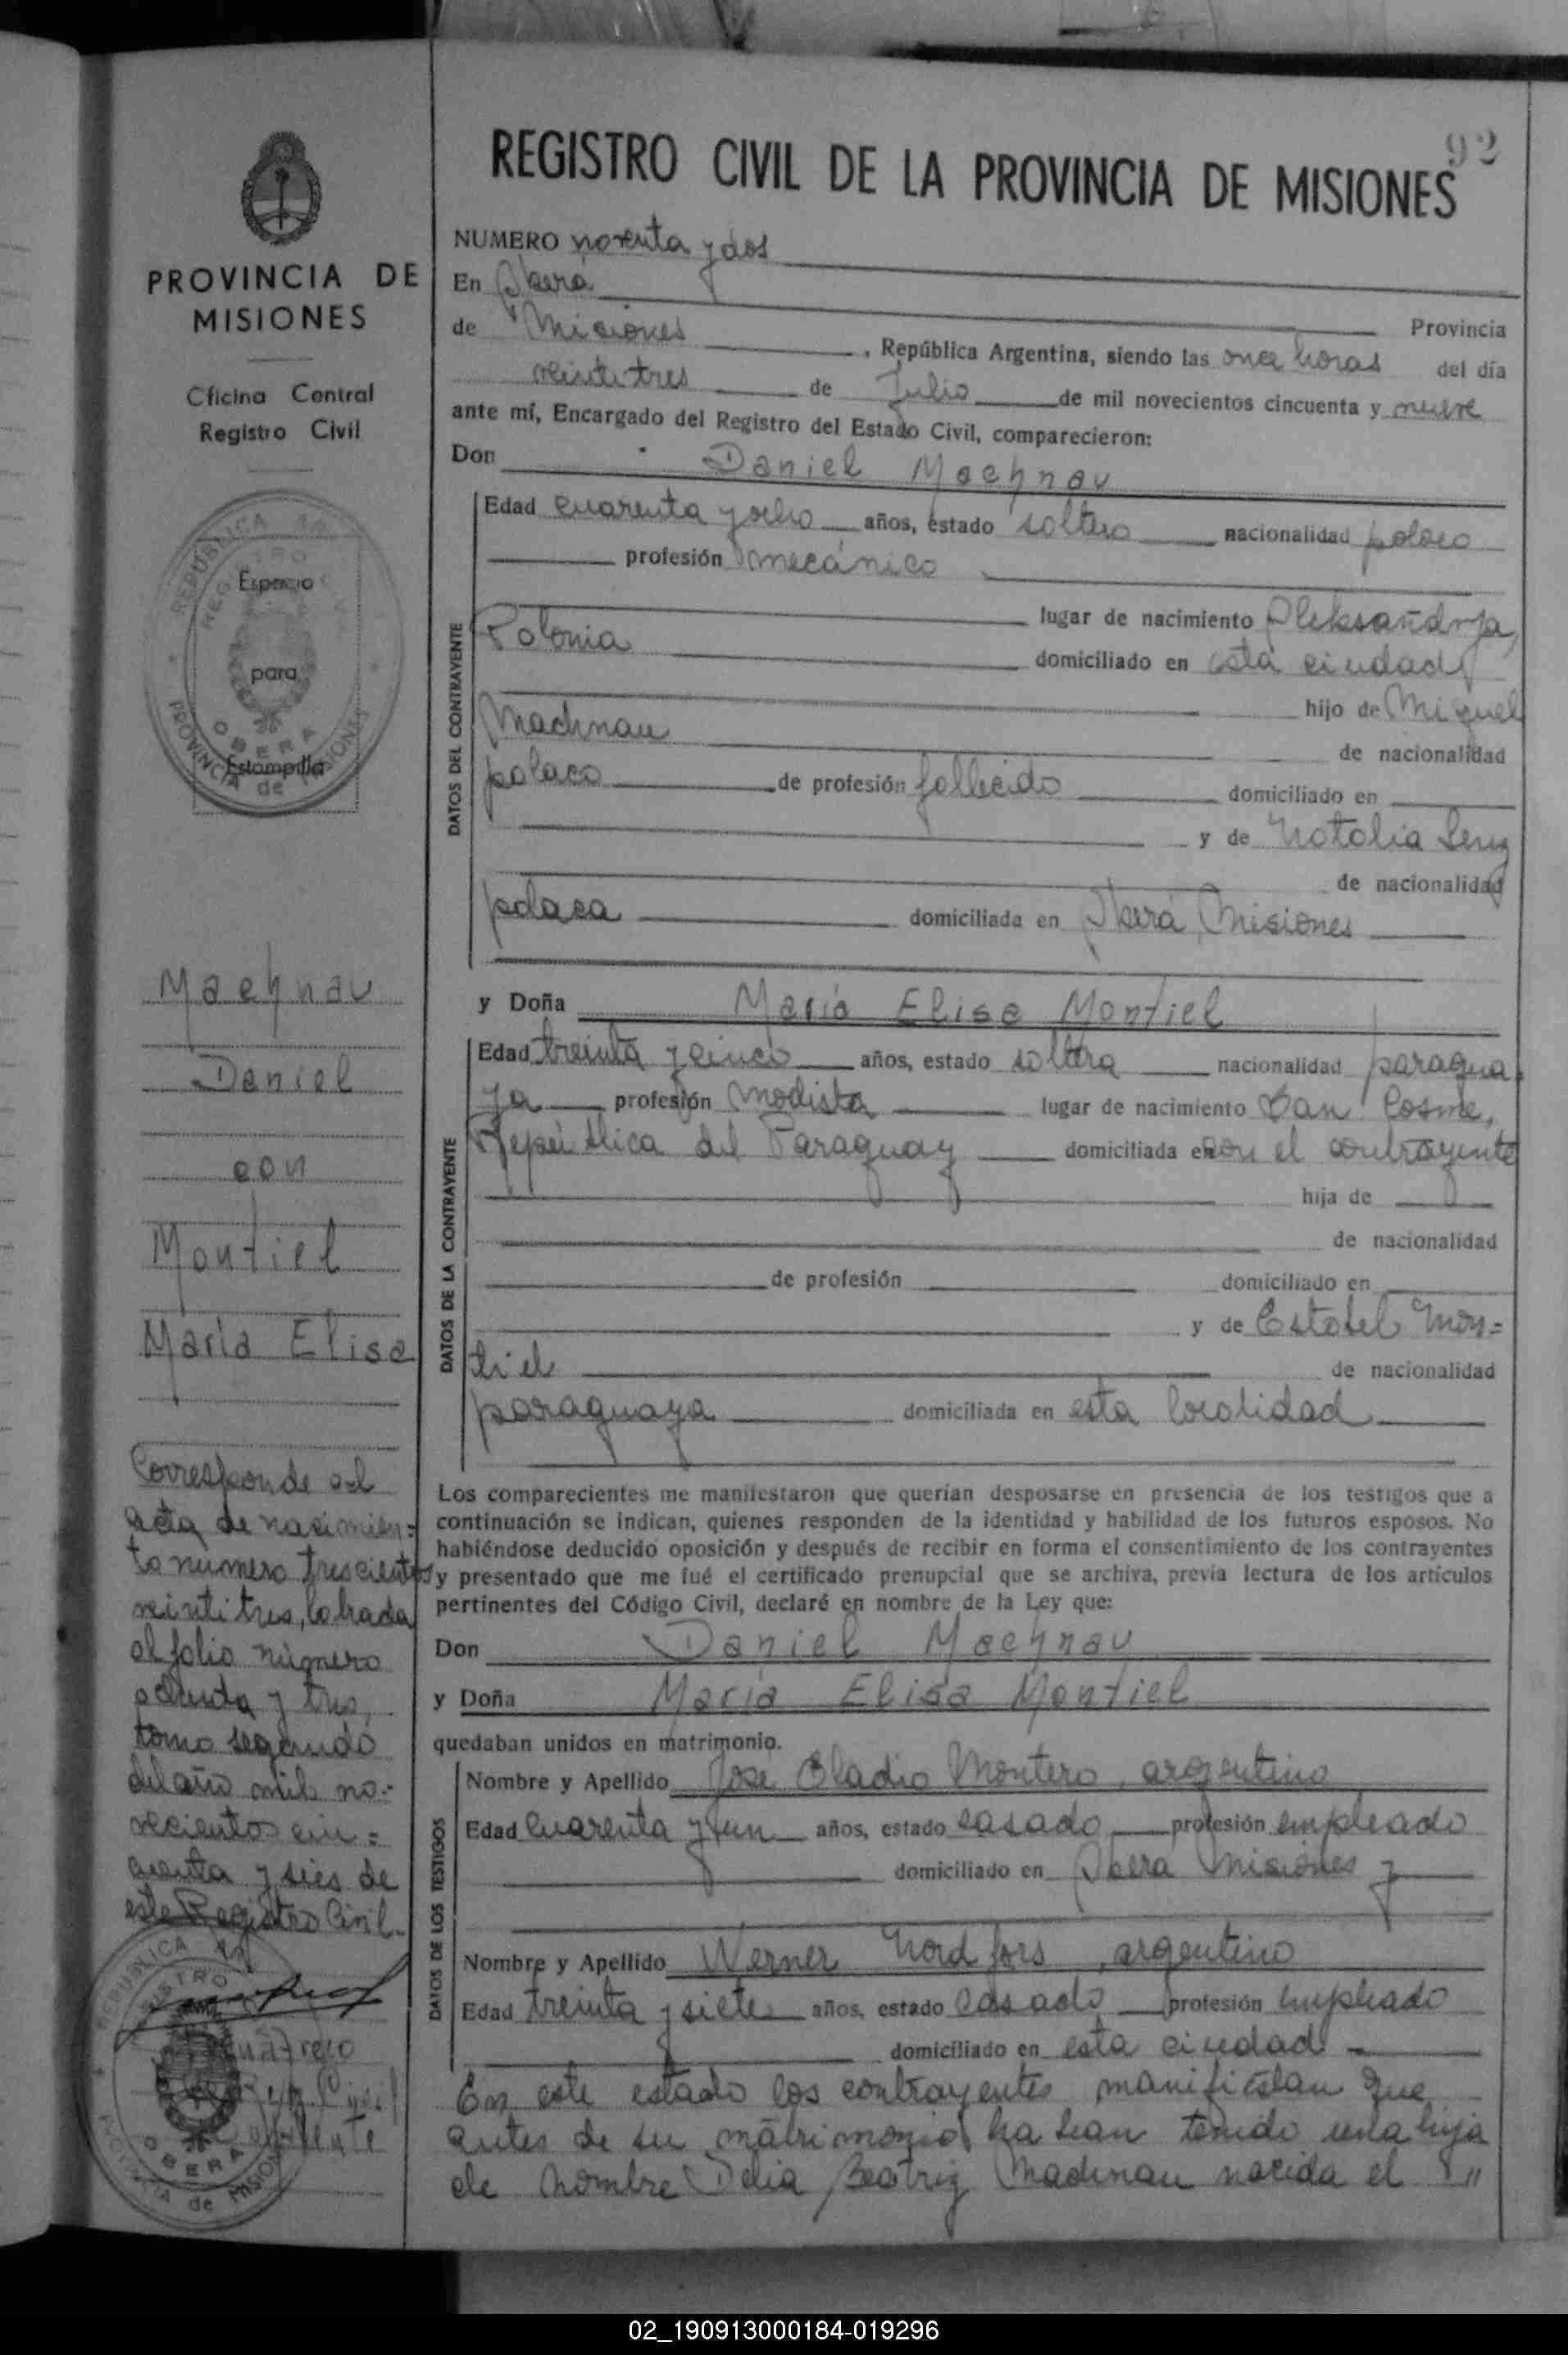 92
REGISTRO CIVIL DE LA PROVINCIA DE MISIONES
PROVINCIA DE
MISIONES
Oficina Central
Registro Civil
Espacio
para
Estampilla
Machnau
Daniel
con
Montiel
María Elisa
Corresponde al
acta de nacimien=
to numero trescientos
veintitres, labrada
al folio número
ochenta y tres,
tomo segundo
del año mil no=
vecientos cin=
cuenta y seis de
este Registro Civil.
NUMERO noventa y dos
En Oberá
Provincia
de Misiones , República Argentina, siendo las once horas del día
veintitres de Julio de mil novecientos cincuenta y nueve
ante mí, Encargado del Registro del Estado Civil, comparecieron:
Don Daniel Machnau
DATOS DEL CONTRAYENTE
Edad cuarenta y ocho años, estado soltero nacionalidad polaco
profesión mecánico
lugar de nacimiento Oleksandrja,
Polonia domiciliado en esta ciudad
hijo de Miguel
Machnau de nacionalidad
polaco de profesión fallecido domiciliado en
y de Natalia
de nacionalidad
polaca domiciliada en Oberá, Misiones
y Doña María Elisa Montiel
DATOS DE LA CONTRAYENTE
Edad treinta y cinco años, estado soltera nacionalidad paragua
ya profesión modista lugar de nacimiento San Cosme,
República del Paraguay domiciliada en con el contrayente
hija de
de nacionalidad
de profesión domiciliado en
y de Mon=
tiel de nacionalidad
paraguaya domiciliada en esta localidad
Los comparecientes me manifestaron que querían desposarse en presencia de los testigos que a
continuación se indican, quienes responden de la identidad y habilidad de los futuros esposos. No
habiéndose deducido oposición y después de recibir en forma el consentimiento de los contrayentes
y presentado que me fué el certificado prenupcial que se archiva, previa lectura de los artículos
pertinentes del Código Civil, declaré en nombre de la Ley que:
Don Daniel Machnau
y Doña María Elisa Montiel
quedaban unidos en matrimonio.
DATOS DE LOS TESTIGOS
Nombre y Apellido José Eladio Montero, argentino
Edad cuarenta y un años, estado casado profesión empleado
domiciliado en Oberá Misiones y
Nombre y Apellido Werner Nordfors, argentino
Edad treinta y siete años, estado casado profesión empleado
domiciliado en esta ciudad.
En este estado los contrayentes manifiestan que
antes de su matrimonio habian tenido una hija
de nombre Delia Beatriz Machnau nacida el
02_190913000184-019296